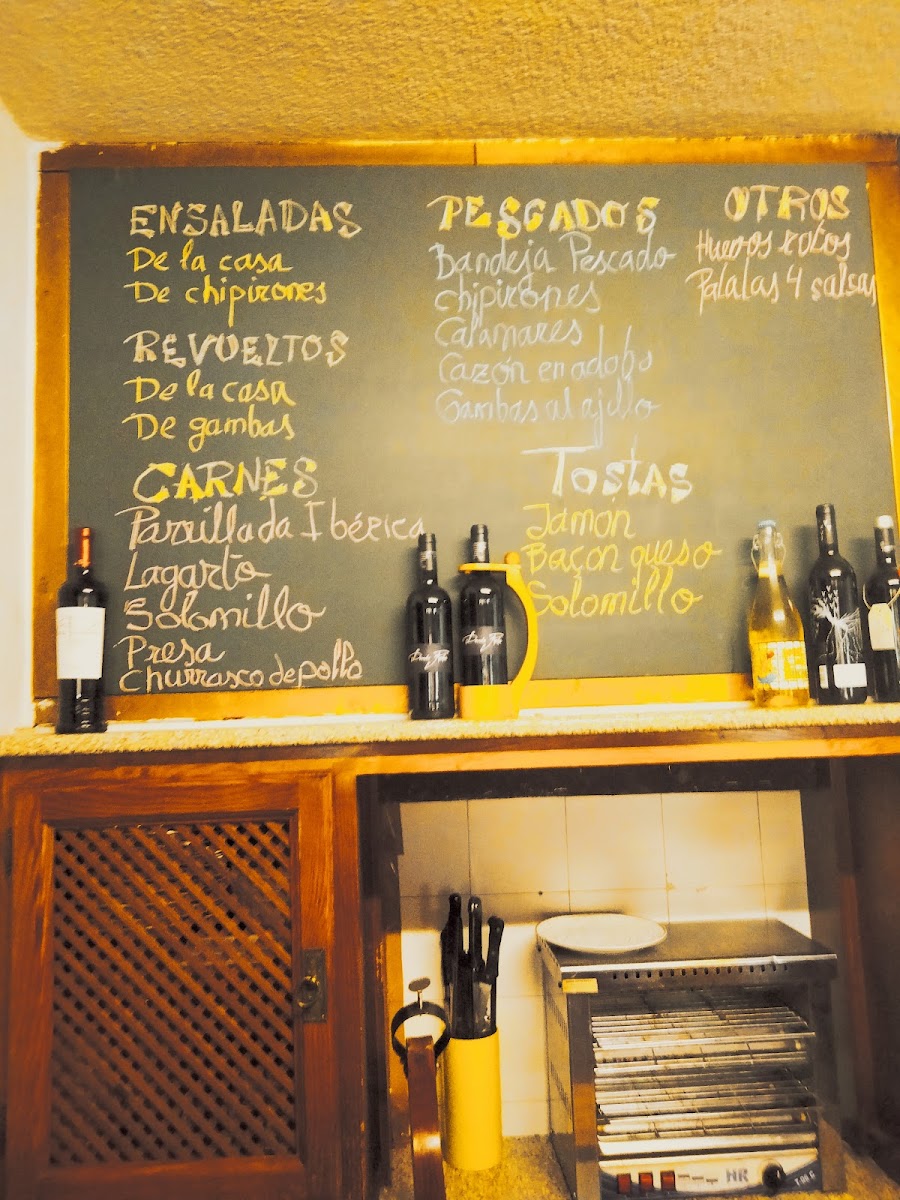 ENSALADAS
De la casa
De chipirones
REVUELTOS
De la casa
De gambas
CARNES
Parrillada Ibérica
Lagarto
Solomillo
Presa
Churrasco de pollo
PESCADOS
Bandeja Pescado
Chipirones
Calamares
Cazón en adobo
Gambas al ajillo
TOSTAS
Jamón
Bacon queso
Solomillo
OTROS
Huevos rotos
Patatas 4 salsas
HR